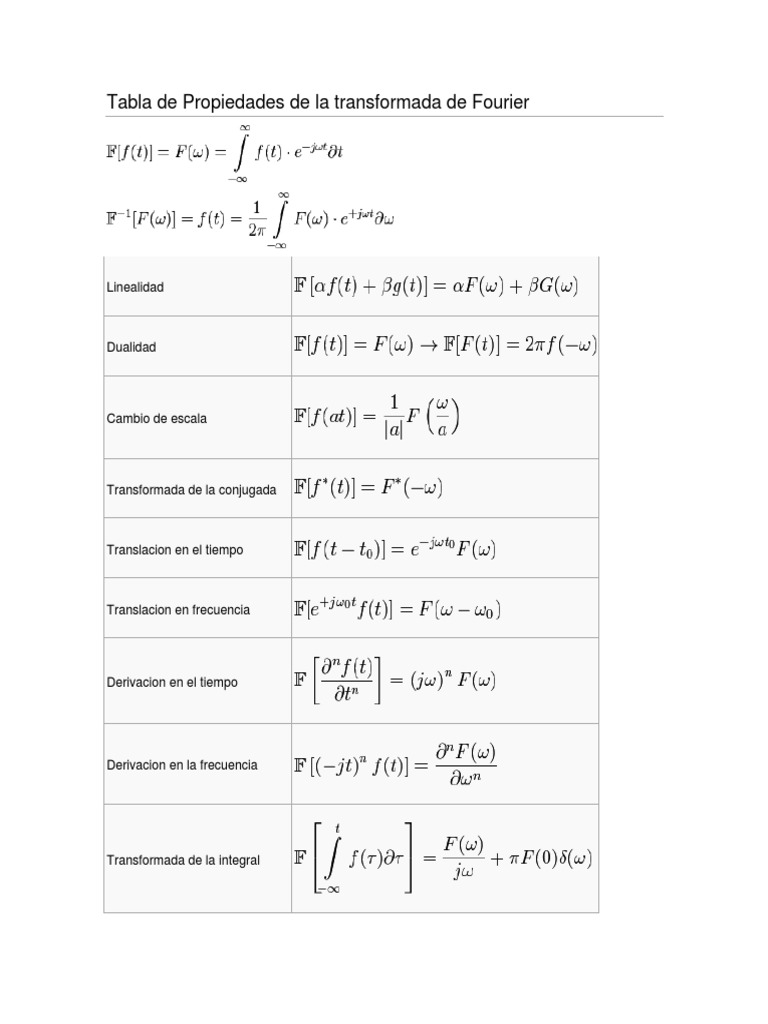 Tabla de Propiedades de la transformada de Fourier
𝔽[f(t)] = F(ω) = ∫_{−∞}^{∞} f(t) · e^{−jωt}∂t
𝔽^{−1}[F(ω)] = f(t) = \frac{1}{2π} ∫_{−∞}^{∞} F(ω) · e^{+jωt}∂ω
Linealidad 𝔽 [αf(t) + βg(t)] = αF(ω) + βG(ω)
Dualidad 𝔽[f(t)] = F(ω) → 𝔽[F(t)] = 2πf(−ω)
Cambio de escala 𝔽[f(at)] = \frac{1}{|a|} F (\frac{ω}{a})
Transformada de la conjugada 𝔽[f^*(t)] = F^*(−ω)
Translacion en el tiempo 𝔽[f(t − t_0)] = e^{−jωt_0}F(ω)
Translacion en frecuencia 𝔽[e^{+jω_0t}f(t)] = F(ω − ω_0)
Derivacion en el tiempo 𝔽 [\frac{∂^n f(t)}{∂t^n}] = (jω)^n F(ω)
Derivacion en la frecuencia 𝔽 [(−jt)^n f(t)] = \frac{∂^n F(ω)}{∂ω^n}
Transformada de la integral 𝔽 [∫_{−∞}^{t} f(τ)∂τ] = \frac{F(ω)}{jω} + πF(0)δ(ω)